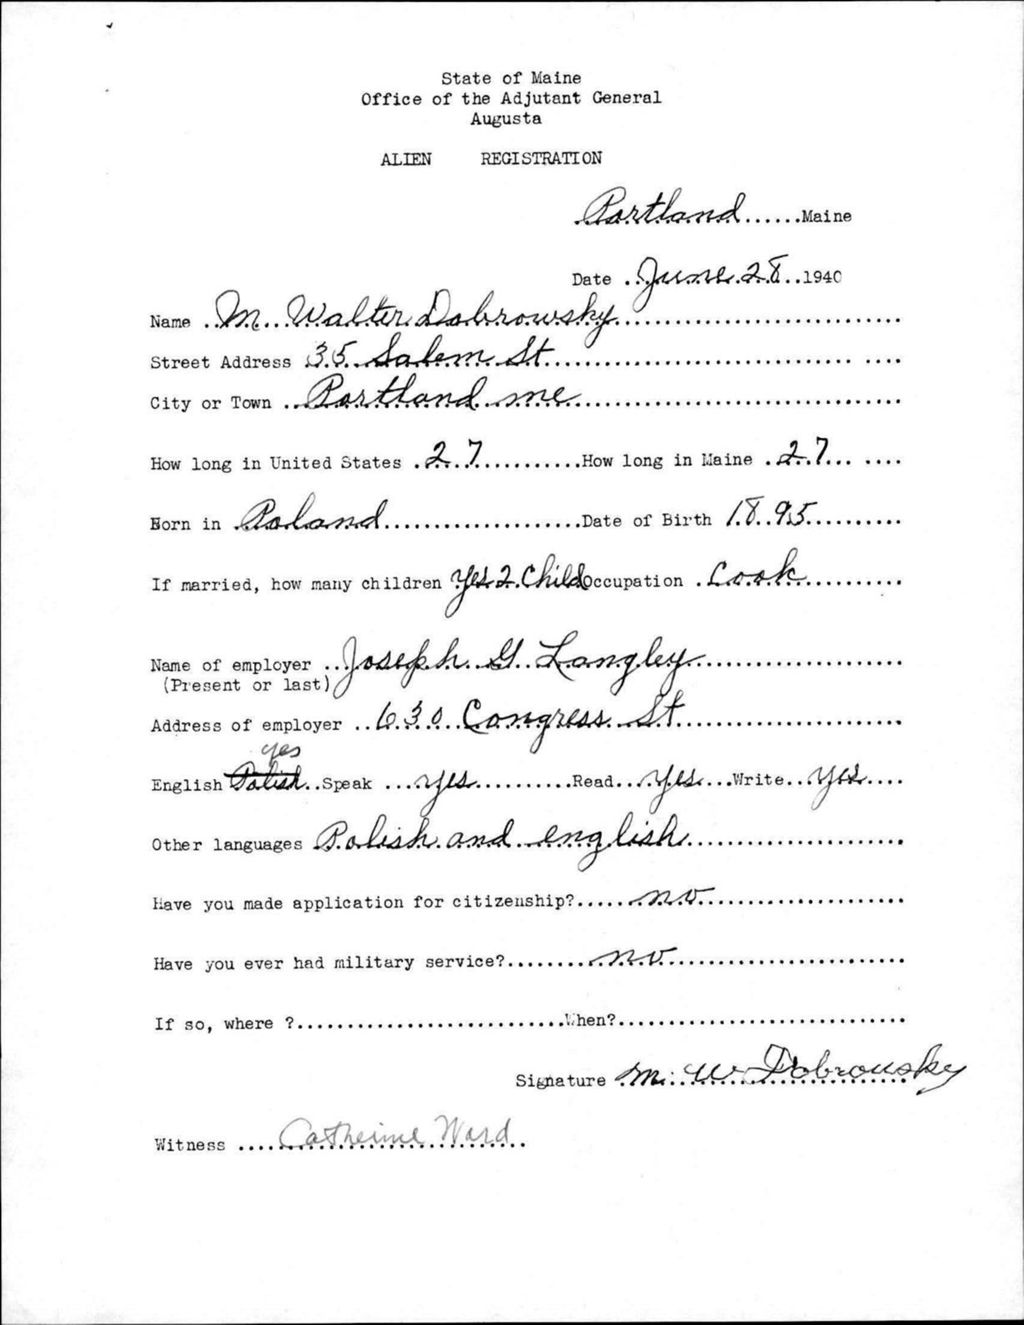 State of Maine
Office of the Adjutant General
Augusta
ALIEN REGISTRATION
Portland......Maine
Date ..June.28..1940
Name ..M...Walter Dobrowsky..............................
Street Address .35..Salem St.....................................
City or Town ..Portland..me.................................
How long in United States .27...........How long in Maine .27... ....
Born in .Poland......................Date of Birth 1895..........
If married, how many children Yes 2 Child Occupation .Cook..........
Name of employer ..Joseph..G..Langley....................
(Present or last)
Address of employer ..630..Congress..St....................
yes
English Polish..Speak ...yes...........Read...Yes...Write..yes....
Other languages Polish.and..english.....................
Have you made application for citizenship?.....no.....................
Have you ever had military service?........no.........................
If so, where ?............................When?..............................
Signature .M. W Dobrowsky
Witness ....Catherine Ward